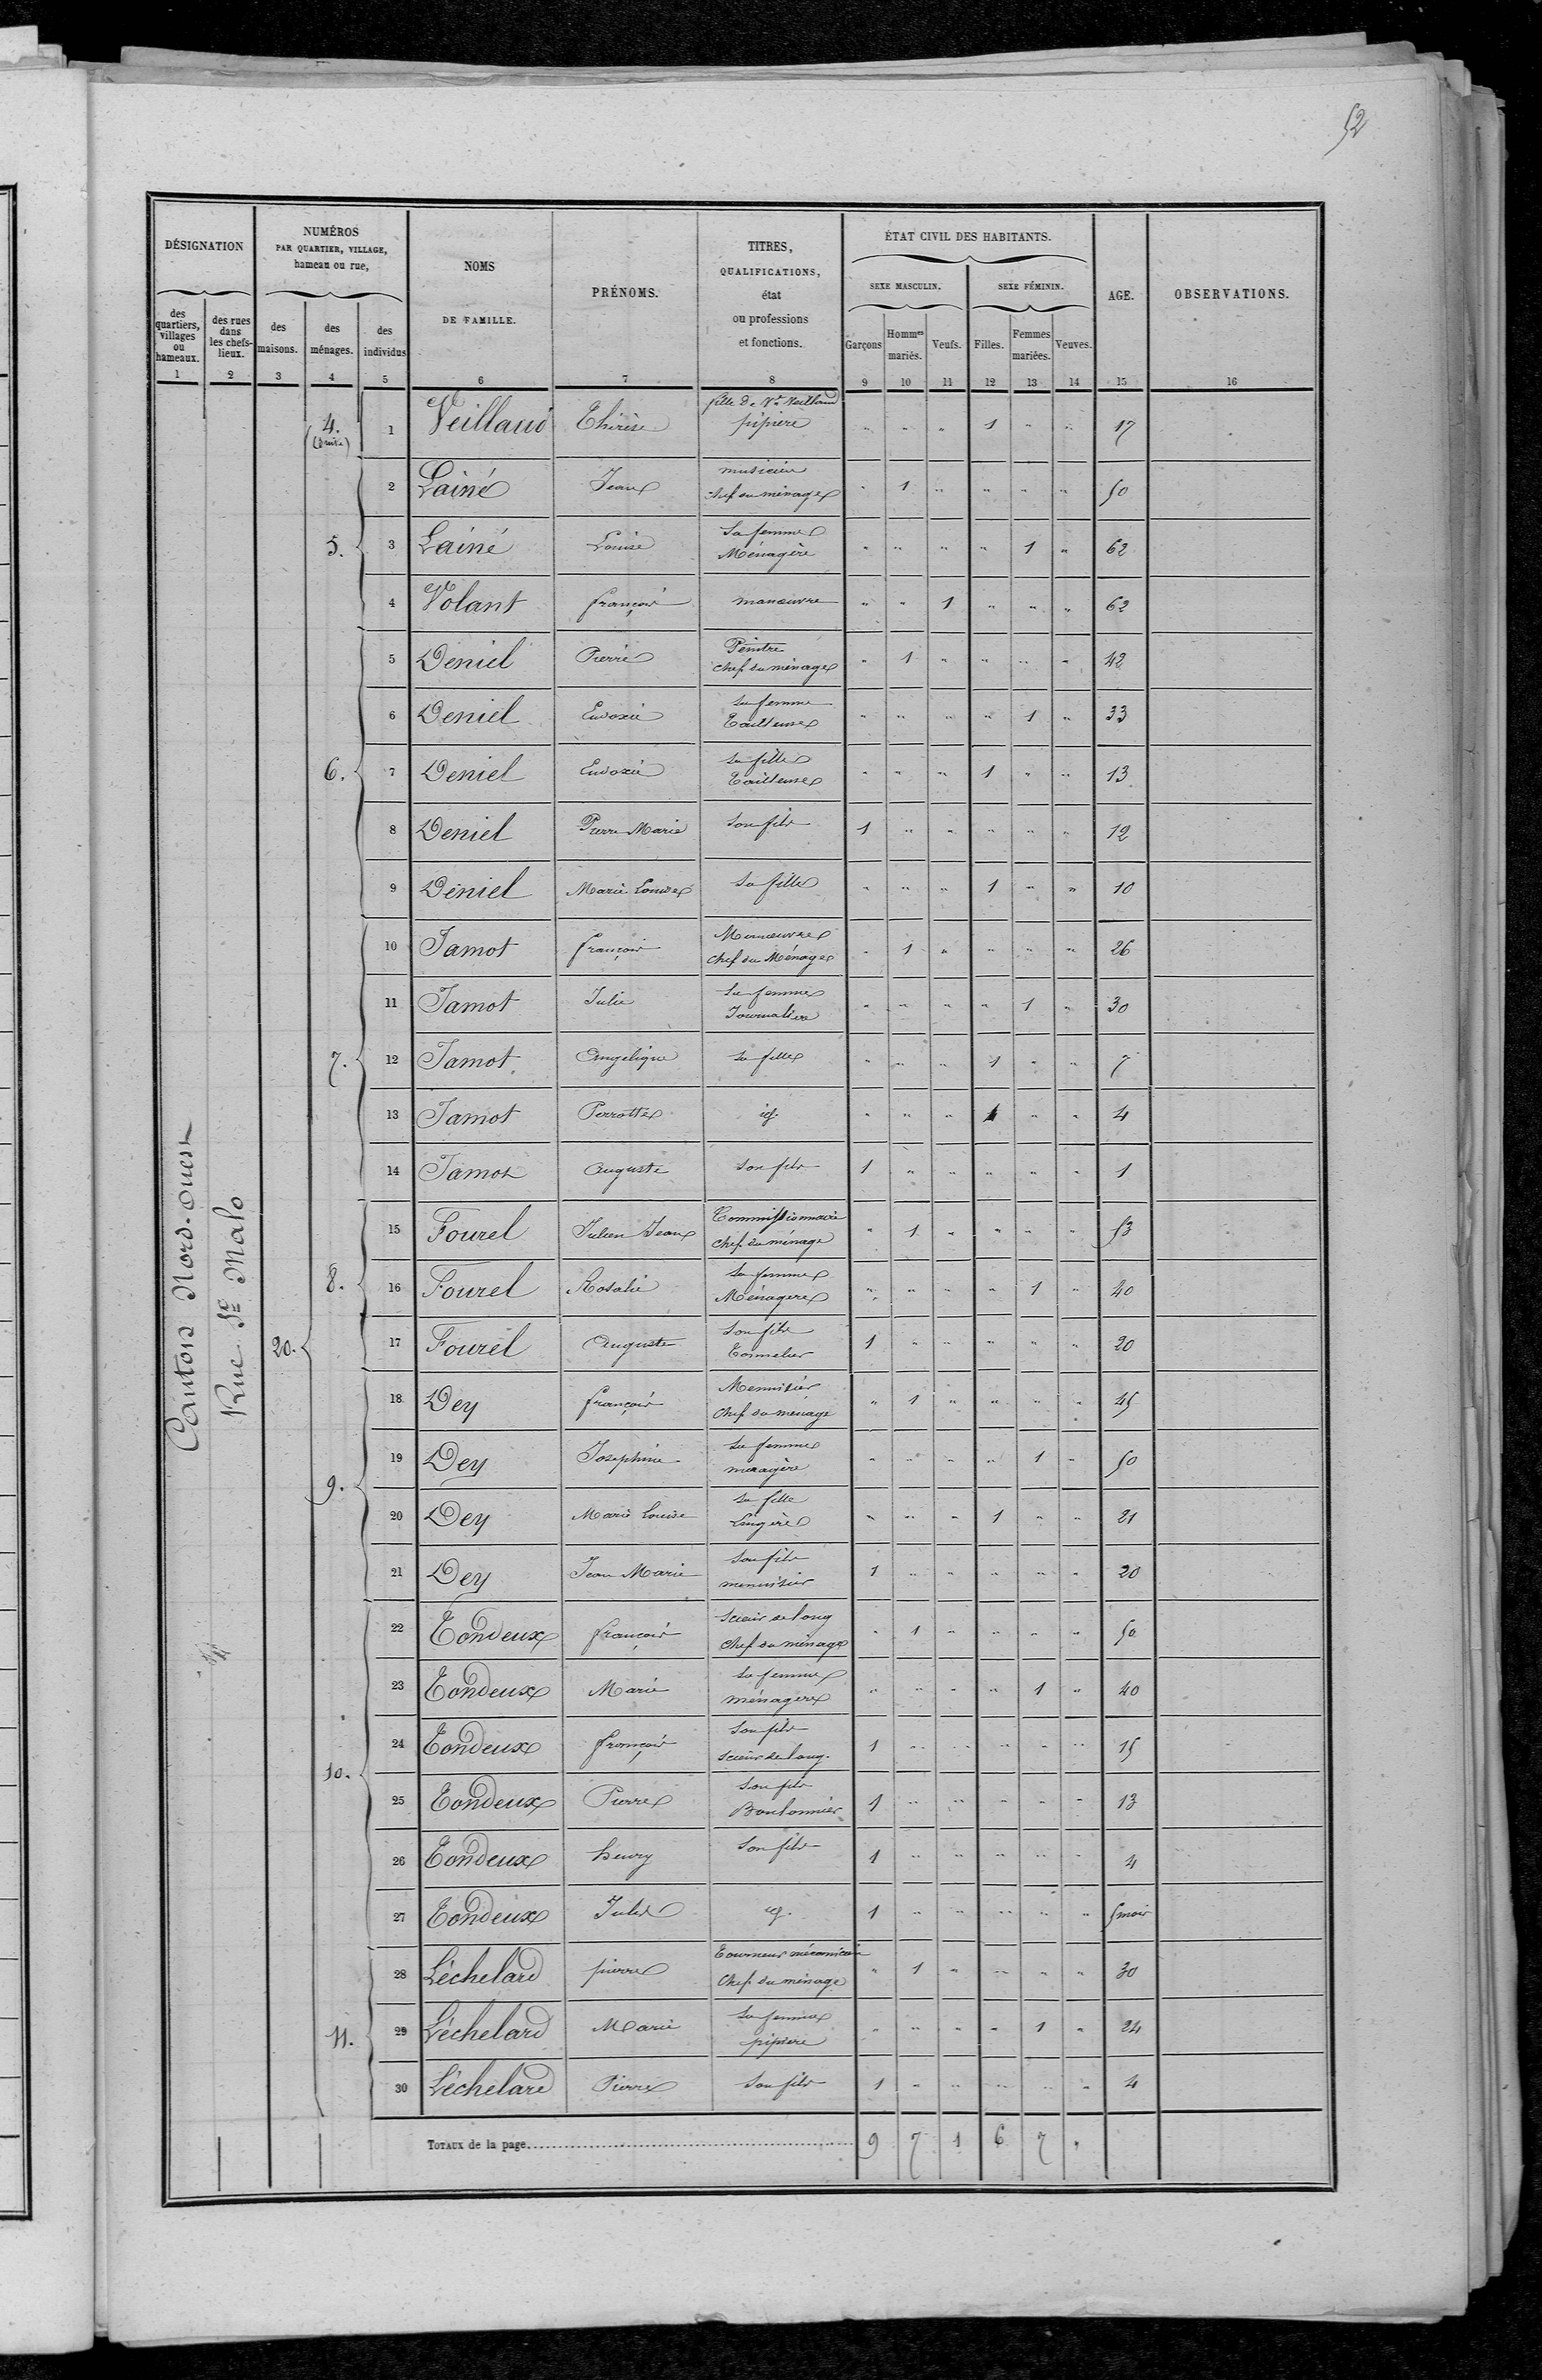 52
DÉSIGNATION
NUMÉROS
PAR QUARTIER, VILLAGE,
hameau ou rue,
NOMS
DE FAMILLE.
PRÉNOMS.
TITRES,
QUALIFICATIONS,
état
ou professions
et fonctions.
ÉTAT CIVIL DES HABITANTS.
SEXE MASCULIN.
SEXE FÉMININ.
AGE.
OBSERVATIONS.
des quartiers, villages ou hameaux.
des rues dans les chefs-lieux.
des maisons.
des ménages.
des individus
Garçons
Hommes mariés.
Veufs.
Filles.
Femmes mariées.
Veuves.
1 2 3 4 5 6 7 8 9 10 11 12 13 14 15 16
Canton Nord-Ouest
Rue St Malo
20.
4. (suite) 1 Veillaud Thérèse fille de Ve Veillaud pipière " " " 1 " " 17
2 Lainé Jean musicien chef du ménage " 1 " " " " 50
5. 3 Lainé Louise Sa femme Ménagère " " " " 1 " 62
4 Volant françois manœuvre " " 1 " " " 62
5 Deniel Pierre Peintre chef du ménage " 1 " " " " 42
6 Deniel Eudoxie sa femme Tailleuse " " " " 1 " 33
6. 7 Deniel Eudoxie sa fille Tailleuse " " " 1 " " 13
8 Deniel Pierre Marie son fils 1 " " " " " 12
9 Deniel Marie Louise sa fille " " " 1 " " 10
10 Jamot françois Manœuvre chef du Ménage " 1 " " " " 26
11 Jamot Julie sa femme Journalière " " " " 1 " 30
7. 12 Jamot Angelique sa fille " " " 1 " " 7
13 Jamot Perrotte id. " " " 1 " " 4
14 Jamot Auguste son fils 1 " " " " " 1
15 Fourel Julien Jean Commissionnaire chef du ménage " 1 " " " " 53
8. 16 Fourel Rosalie sa femme Ménagère " " " " 1 " 40
17 Fourel Auguste son fils Tonnelier 1 " " " " " 20
18 Dey françois Menuisier Chef du ménage " 1 " " " " 45
19 Dey Josephine sa femme menagère " " " " 1 " 50
9. 20 Dey Marie Louise sa fille Lingère " " " 1 " " 21
21 Dey Jean Marie son fils menuisier 1 " " " " " 20
22 Tondeux françois scieur de long chef du ménage " 1 " " " " 50
23 Tondeux Marie sa femme ménagère " " " " 1 " 40
24 Tondeux françois son fils scieur de long. 1 " " " " " 15
10. 25 Tondeux Pierre son fils Boulonnier 1 " " " " " 13
26 Tondeux henry son fils 1 " " " " " 4
27 Tondeux Jules id. 1 " " " " " 5 mois
28 Léchelard pierre Tourneur mécanicien Chef du ménage " 1 " " " " 30
11. 29 Léchelard Marie sa femme pipière " " " " 1 " 24
30 Léchelard Pierre son fils 1 " " " " " 4
TOTAUX de la page 9 7 1 6 7 "